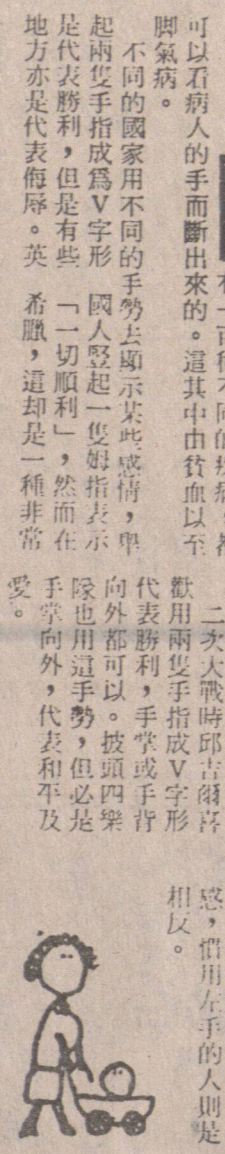 有一百種不同的疾病,都
可以看病人的手而斷出來的。這其中由貧血以至
脚氣病。
不同的國家用不同的手勢去顯示某些感情,舉
起兩隻手指成爲V字形
是代表勝利,但是有些
地方亦是代表侮辱。英
國人豎起一隻姆指表示
「一切順利」,然而在
希臘,這却是一種非常
二次大戰時邱吉爾喜
歡用兩隻手指成V字形
代表勝利,手掌或手背
向外都可以。披頭四樂
隊也用這手勢,但必是
手掌向外,代表和平及
愛。
感,慣用左手的人則是
相反。